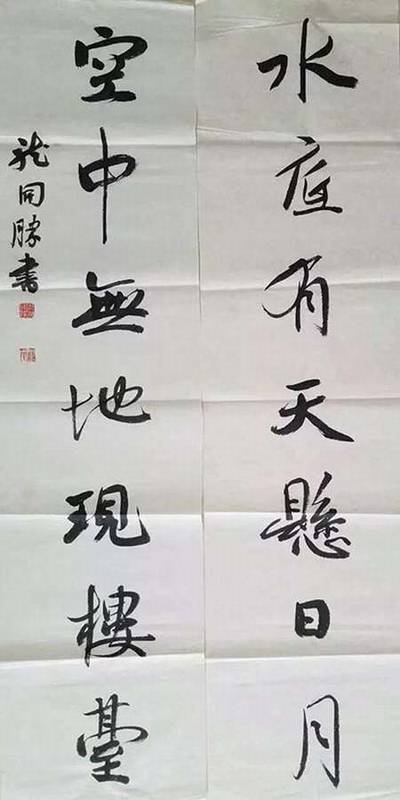 水底有天懸日月
空中無地現樓臺
龙同勝書